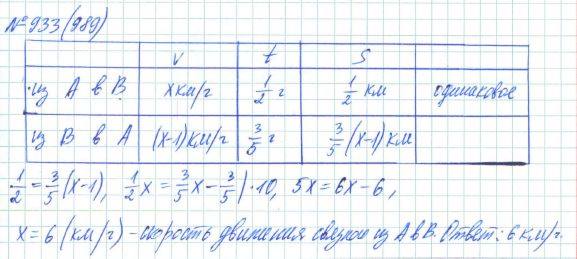 №933(989)
v t S
из А в В х км/г 1/2 г 1/2 км одинаковое
из В в А (х-1) км/г 3/5 г 3/5 (х-1) км
1/2 = 3/5 (х-1), 1/2 х = 3/5 х - 3/5 | · 10, 5х = 6х - 6,
х = 6 (км/г) - скорость движения из А в В. Ответ: 6 км/г.